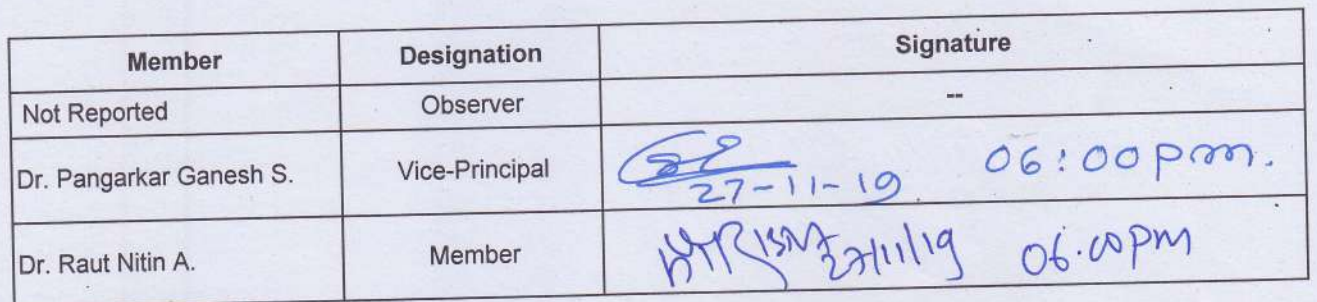 Member Designation Signature
Not Reported Observer --
Dr. Pangarkar Ganesh S. Vice-Principal 06:00 pm.
27-11-19
Dr. Raut Nitin A. Member 27/11/19 06.00pm